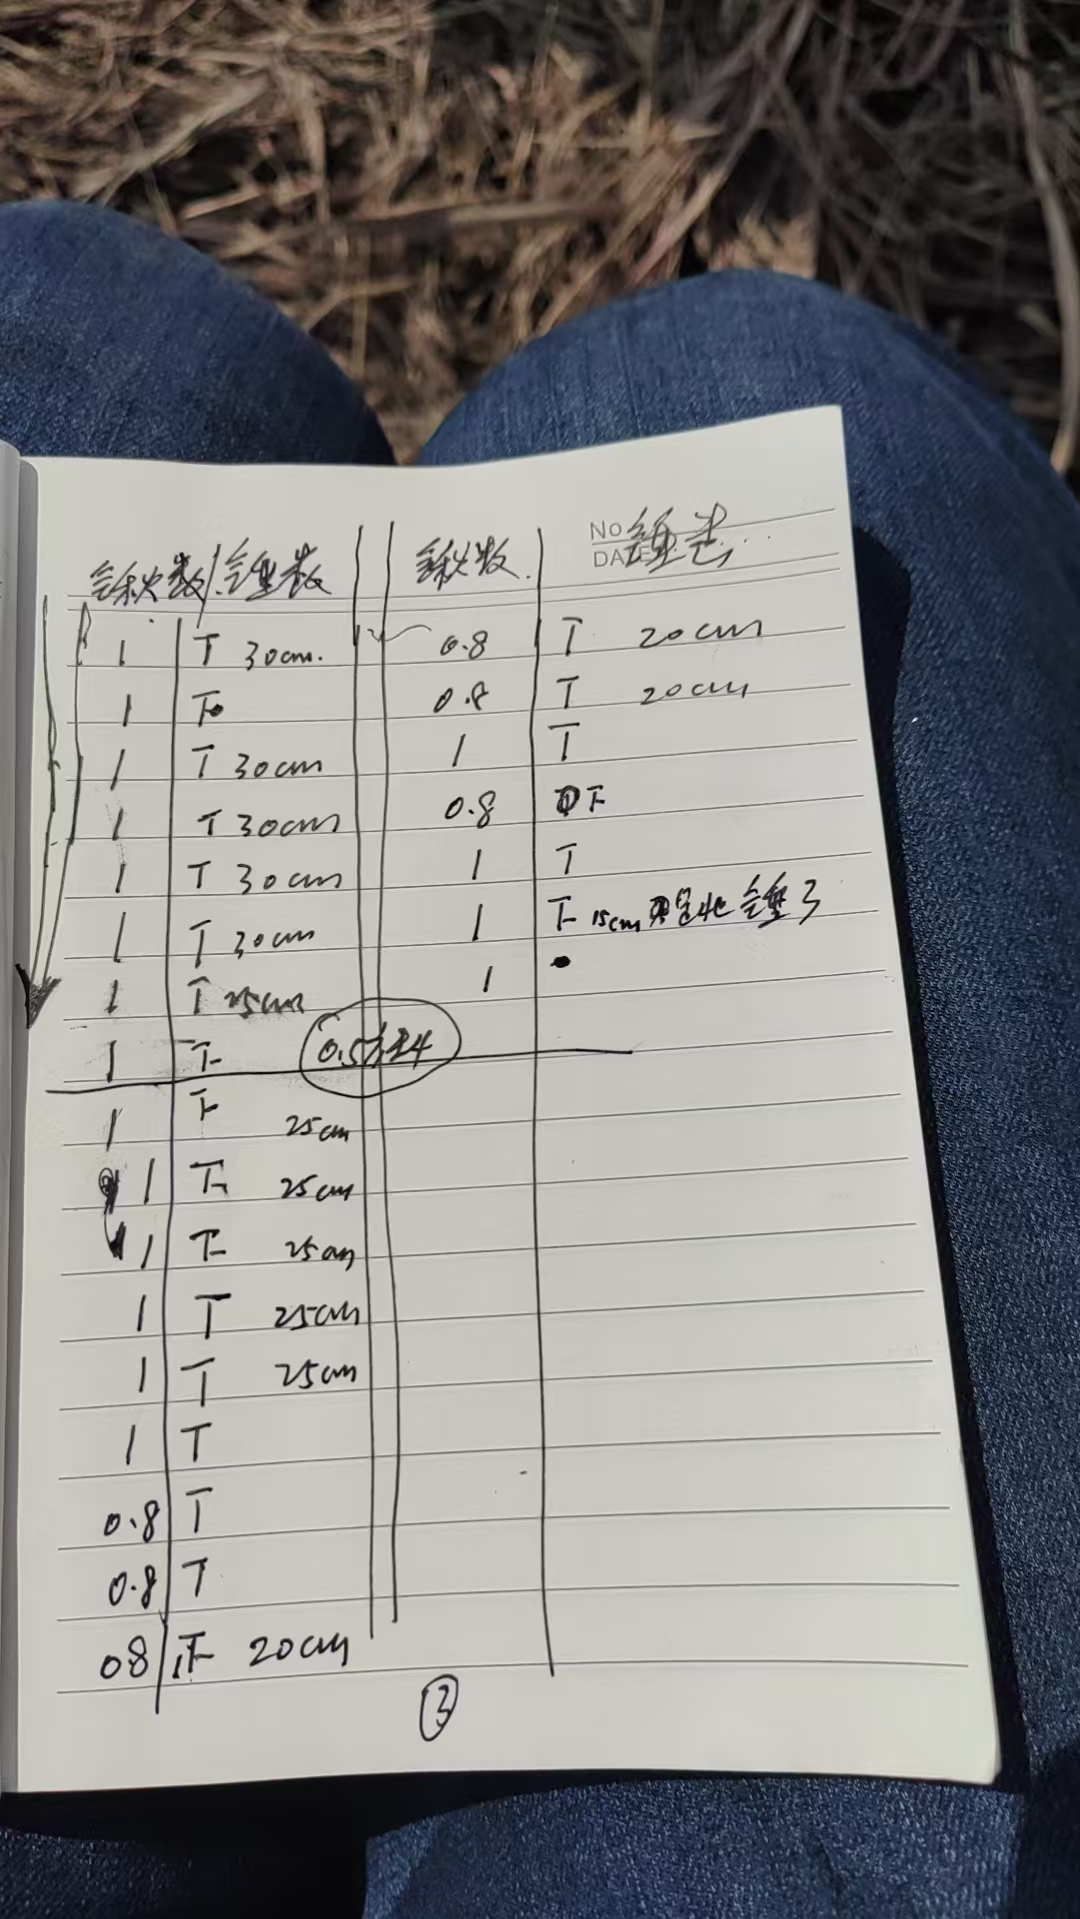 锹数 锤数 锹数 锤数
NO
DATE
1 T 30cm. 0.8 T 20cm
1 下 0.8 T 20cm
1 T 30cm 1 T
1 T 30cm 0.8 下
1 T 30cm 1 T
1 T 30cm 1 下 15cm
1 T 25cm 1
1 下 0.5
1 下 25cm
1 下 25cm
1 下 25cm
1 T 25cm
1 T 25cm
1 T
0.8 T
0.8 T
08 正 20cm
③